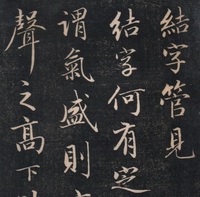 結字管見
結字何有定
謂氣盛則
聲之高下